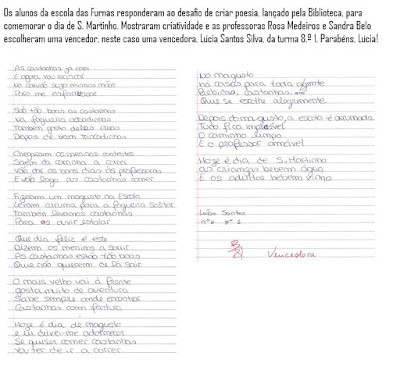 Os alunos da escola das Furnas responderam ao desafio de criar poesia, lançado pela Biblioteca, para
comemorar o dia de S. Martinho. Mostraram criatividade e as professoras Rosa Medeiros e Sandra Belo
escolheram uma vencedor, neste caso uma vencedora, Lúcia Santos Silva, da turma 8.º 1. Parabéns, Lúcia!
As castanhas já caem
E agora vou
Para me
São tão boas as castanhas
na fogueira
Também gosto delas cruas
Depois de bem
Chegaram os meninos contentes
a correr
vão dar os bons dias às professoras
E vão logo as castanhas comer
Fizeram um magusto na Escola
caruma para a fogueira saltar
Também levamos castanhas
Para as ouvir estalar
Que dia feliz é este
Dizem os meninos a sorrir
As castanhas estão tão boas
Que não querem de lá sair
O mais velho vai à frente
gosta muito de aventura
Sabe sempre onde encontrar
Castanhas com fartura
Hoje é dia de magusto
e eu deixei-me adormecer
Se quiser comer castanhas
vou ter de ir a correr
No magusto
há coisas para toda a gente
Bebidas, castanhas
Que se escolhe alegremente
Depois do magusto, a escola é arrumada
Tudo fica impecável
O caminho limpo
E o professor amável
Hoje é dia de S. Martinho
as crianças bebem água
E os adultos bebem vinho
Lúcia Santos
nº 8º 1
Vencedora